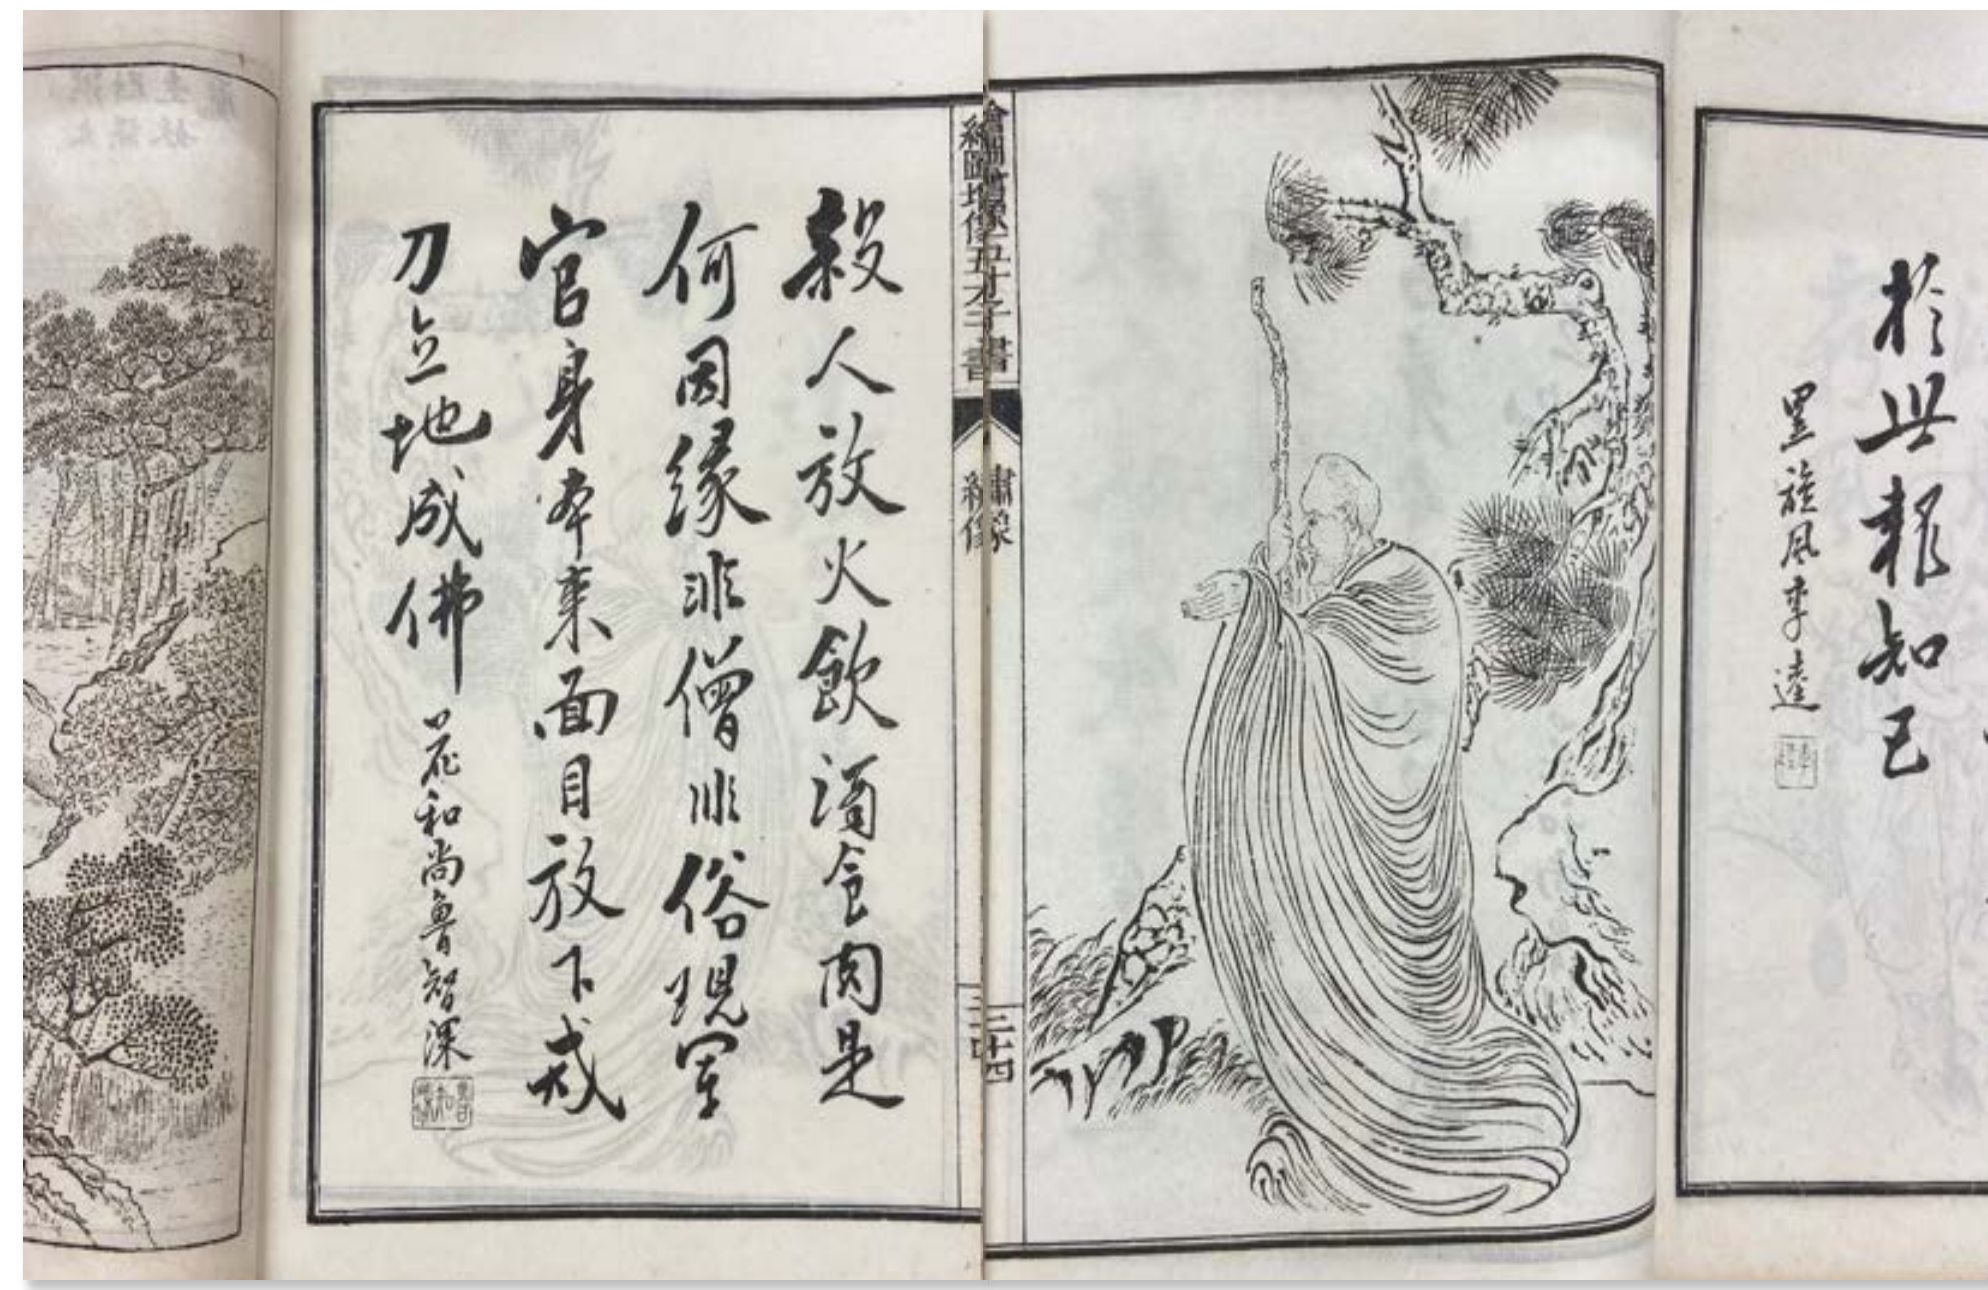 於此報知己
黑旋風李逵
繪圖增像五才子書
繡像
殺人放火飲酒食肉是
何因緣非僧非俗現宰
官身本來面目放下戒
刀立地成佛 花和尚魯智深